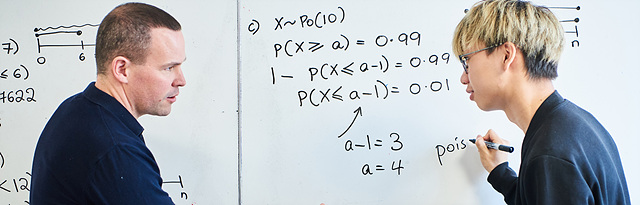 7)
0 6
≤ 6)
7622
)
< 12
n
c) X~Po(10)
P(X ≥ a) = 0.99
1 - P(X ≤ a-1) = 0.99
P(X ≤ a-1) = 0.01
a-1 = 3
a = 4
pois
n